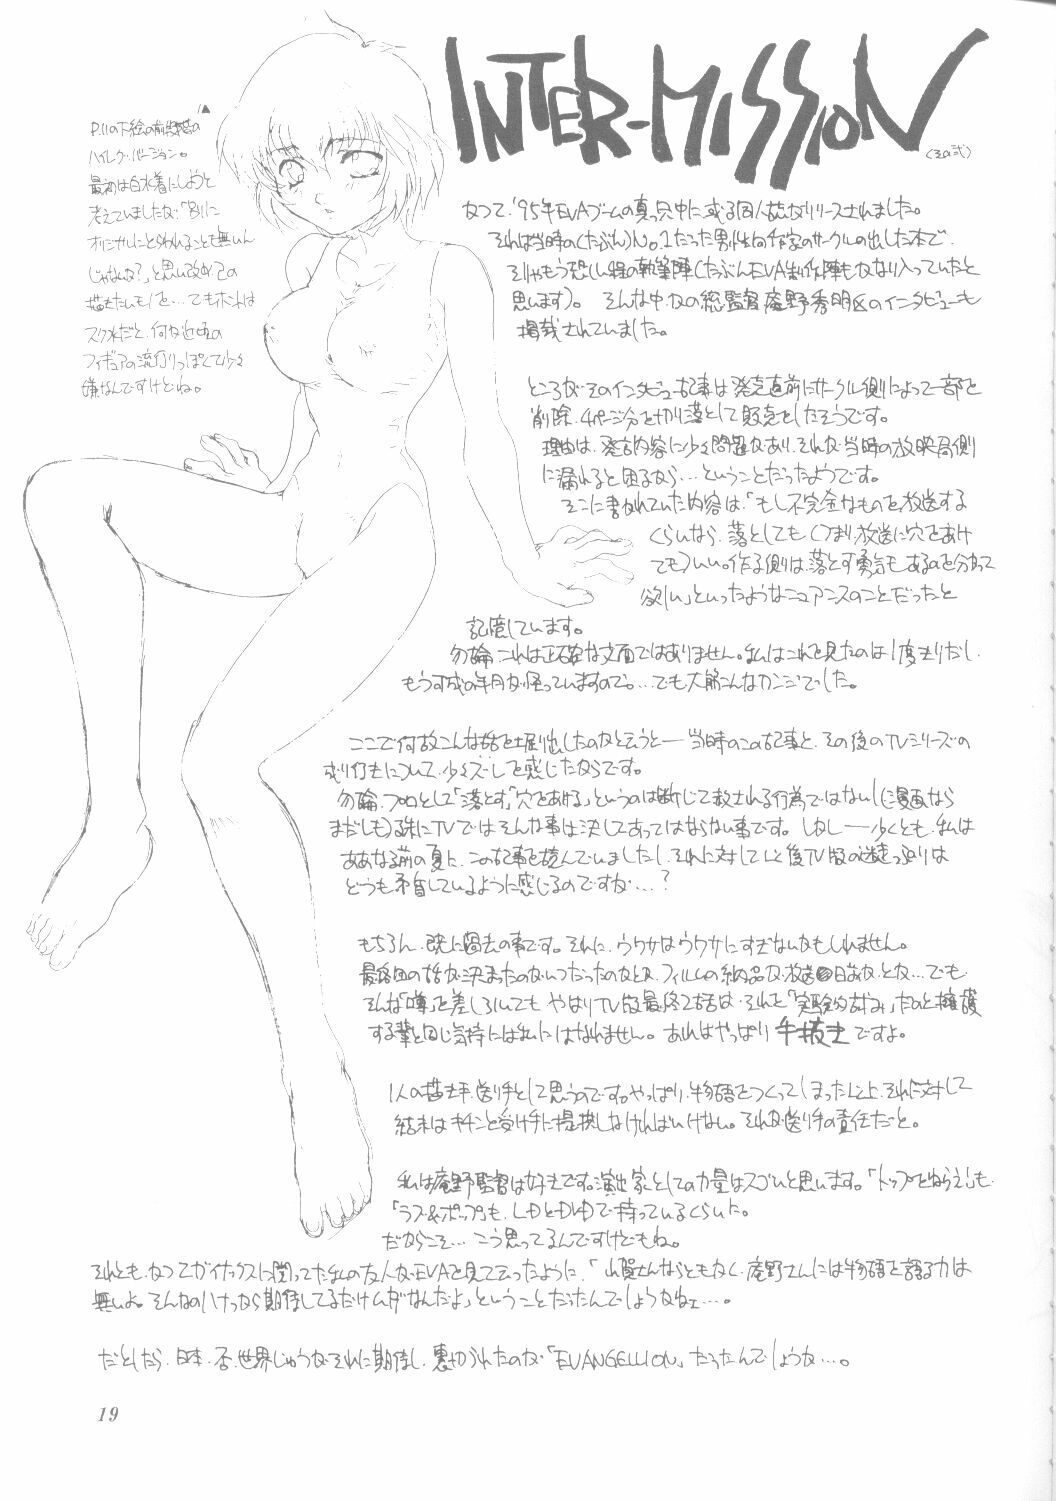 INTER-MISSION
(その弐)
P.11の下絵の前段階の
ハイレグ・バージョン。
最初は白水着にしようと
考えていましたが「別に
オリジナルにとらわれることも無いん
じゃないか?」と思い改めこの
描きたいモノを…でもホントは
スク水だと、何か近頃の
フィギュアの流行りっぽくて少々
嫌なんですけどね。
かつて、'95年EVAブームの真っ只中に或る同人誌がリリースされました。
それは当時の(たぶん)No.1だった男性向作家のサークルの出した本で、
そりゃもう恐しい程の執筆陣(たぶんEVA制作陣もかなり入っていたと
思います)。そんな中かの総監督庵野秀明氏のインタビューも
掲載されていました。
ところが、そのインタビュー記事は発売直前にサークル側によって一部を
削除、4ページ分を切り落として販売をしたそうです。
理由は、発言内容に少々問題があり、それが当時の放映局側
に漏れると困るから…ということだったようです。
そこに書かれていた内容は、「もし不完全なものを放送する
くらいなら、落としても(つまり、放送に穴をあけ
ても)いい。作る側は、落とす勇気もあるのを分かって
欲しい」といったようなニュアンスのことだったと
記憶しています。
勿論、これは正確な文面ではありません。私はこれを見たのは1度きりだし、
もう可成の年月が経っていますので。…でも大筋こんなカンジでした。
ここで何故こんな話を掘り出したのかと云うと──当時のこの記事と、その後のTVシリーズの
成り行きについて、少々ズレを感じたからです。
勿論、プロとして「落とす」「穴をあける」というのは断じて許される行為ではないし(漫画なら
まだしも)殊にTVではそんな事は決してあってはならない事です。しかし──少くとも、私は
ああなる前の夏に、この記事を読んでいましたし、それに対して以後TV版の迷走っぷりは
どうも矛盾しているように感じるのですが…?
もちろん、既に過去の事です。それに、ウワサはウワサにすぎないかもしれません。
最終回の話が決まったのがいつだったのかとか、フィルムの納品が放送日前だとか…でも、
そんな「噂」を差し引いても、やはりTV版最終2話は、それを「実験的試み」だのと擁護
する輩と同じ気持には私にはなれません。あれはやっぱり手抜きですよ。
1人の描き手、送り手として思うのです。やっぱり、物語をつくってしまった以上、それに対して
結末はキチンと受け手に提供しなければいけない。それが送り手の責任だと。
私は庵野監督は好きです。演出家としての力量はスゴいと思います。「トップをねらえ!」も
「ラブ&ポップ」も、LDとDVDで持っているくらいだ。
だからこそ…こう思ってるんですけどもね。
それとも、かつてガイナックスに関ってた私の友人がEVAを見て云ったように、「山賀さんならともかく、庵野さんには物語を語る力は
無いよ。そんなのハナっから期待してるだけムダなんだよ」ということだったんでしょうかねェ…。
だとしたら、日本、否、世界じゅうがそれに期待し、裏切られたのが「EVANGELLION」だったんでしょうか…。
19